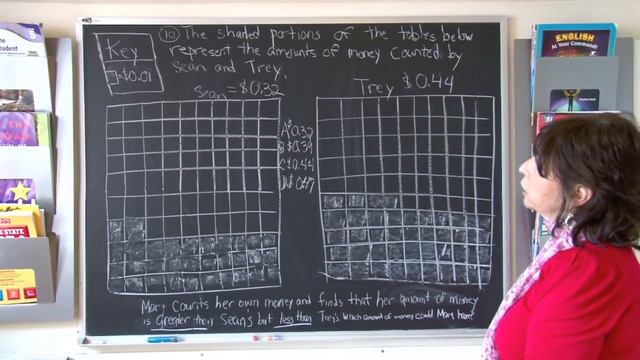 ⑩ The shaded portions of the tables below
represent the amounts of money counted by
Sean and Trey.
Key
=$0.01
Sean = $0.32
Trey $0.44
A $0.32
B $0.39
C $0.44
D $0.47
Mary counts her own money and finds that her amount of money
is greater then Sean's but less than Trey's. Which amount of money could Mary have?
ENGLISH
At Your Command!
Student
STAR